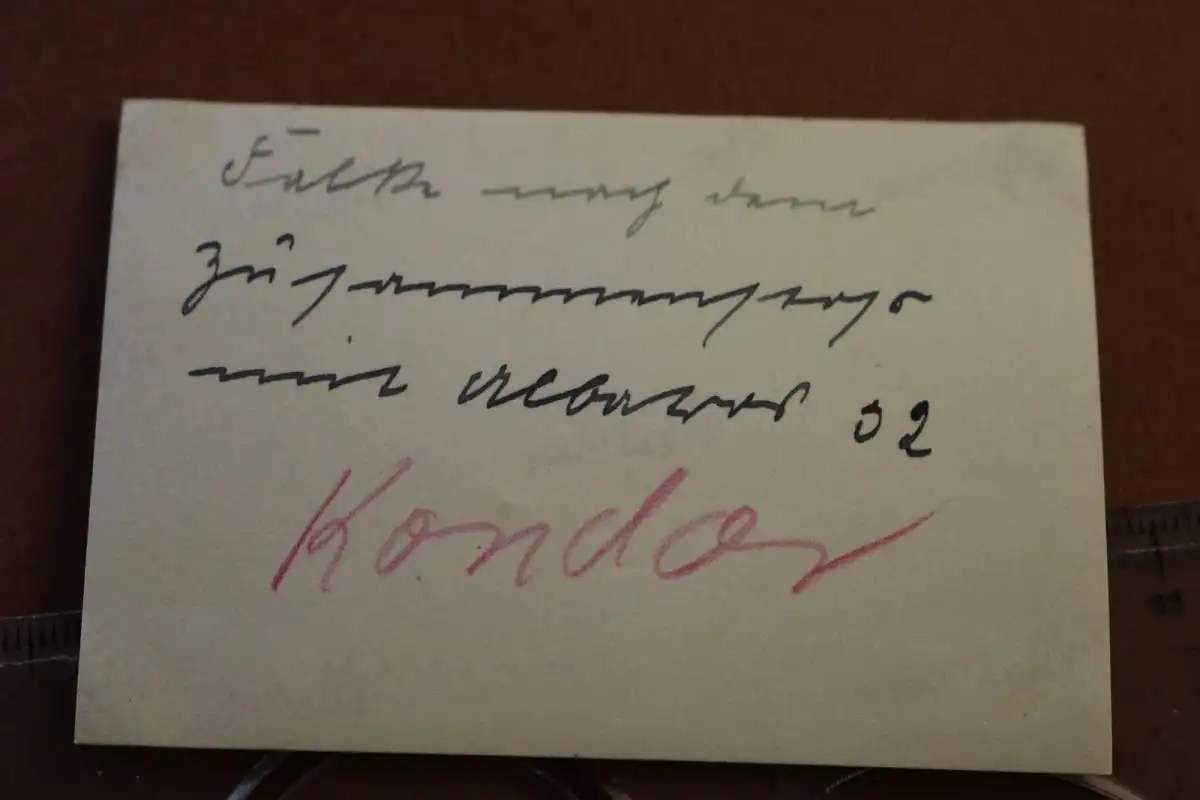 Falke nach dem
Zusammenstoß
mit Albatros D2
Kondor